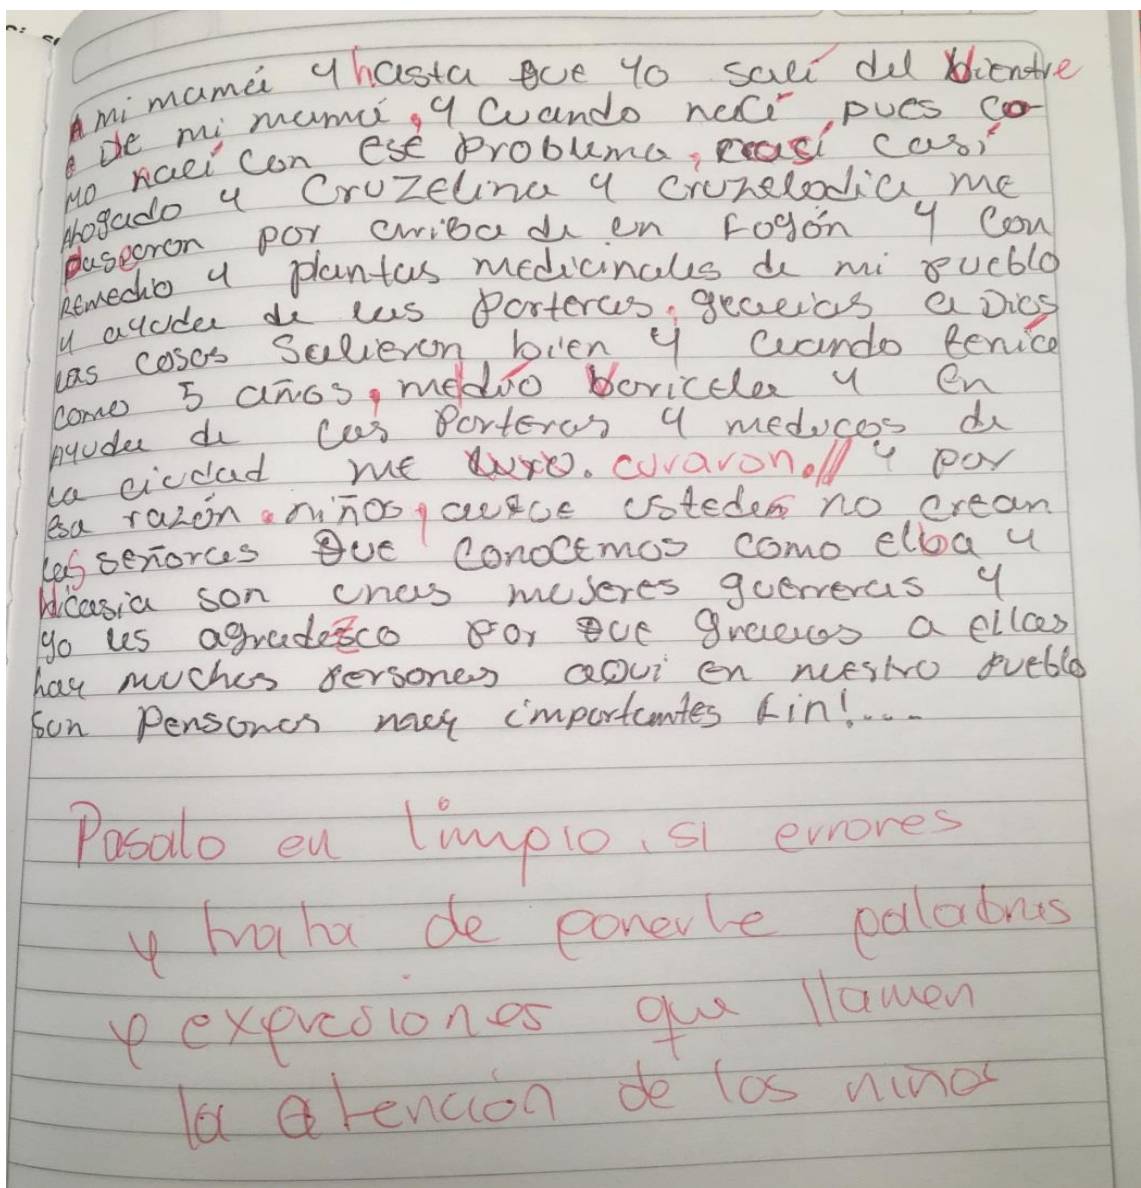 A mi mamá y hasta que yo salí del vientre
De mi mamá, y cuando nací, pues co-
mo nací con ese problema, casi casi
Ahogado y Cruzelina y cruzelodia me
pasearon por arriba de en Fogón y con
Remedio y plantas medicinales de mi pueblo
y ayuda de las Parteras. gracias a Dios
las cosas Salieron, bien y cuando tenía
como 5 años, me dio varicela y en
Ayuda de las Parteras y medicos de
la ciudad me curaron. y por
esa razón niños, aunque ustedes no crean
las señoras que conocemos como elba y
Nicasia son unas mujeres guerreras y
yo les agradezco por que gracias a ellas
hay muchas personas aqui en nuestro pueblo
Son Personas muy importantes Fin!....
Pasalo en limpio, si errores
y trata de ponerle palabras
y expresiones que llamen
la atención de los niños